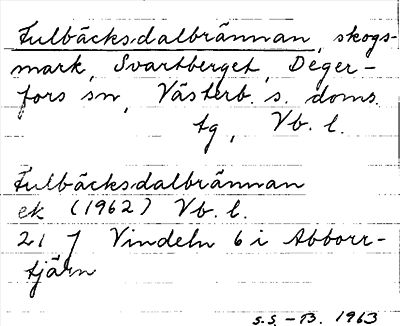 Fulbäcksdalbrännan, skogs-
mark, Svartberget, Deger-
fors sn, Västerb. s. doms.
tg, Vb. l.
Fulbäcksdalbrännan
ek (1962) Vb. l.
21 J Vindeln 6 i Abborr-
tjärn
S.S. - B. 1963